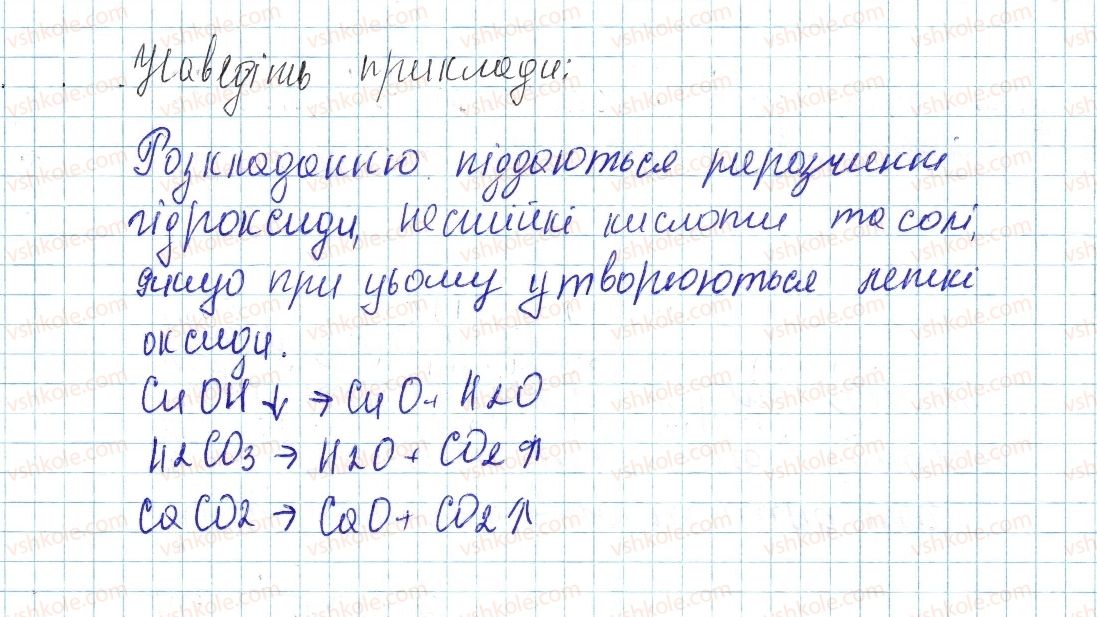 Наведіть приклади:
Розкладанню піддаються нерозчинні
гідроксиди, нестійкі кислоти та солі,
якщо при цьому утворюються леткі
оксиди.
CuOH↓ → CuO + H2O
H2CO3 → H2O + CO2↑
CaCO2 → CaO + CO2↑